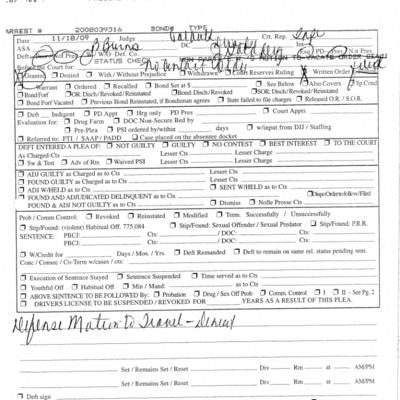 ARREST # 2008039316 BOND# TYPE
Date 11/18/09 Judge Crt. Rep.
ASA P Burns DC
Deft Pres Not Pres. W/ W/O Def. Co. Esq PD Pres Not Pres.
STATUS CHECK no contact
Granted Denied With / Without Prejudice Withdrawn Court Reserves Ruling Written Order filed
Warrant Ordered Recalled Bond Set at $ See Below Also Covers Sp.Cond
Bond Forf OR Disch/Revoked/Reinstated SOR: Disch/Revoked/Reinstated
Bond Forf Vacated Previous Bond Reinstated, if Bondsman agrees State failed to file charges Released O.R. / S.O.R.
Deft Indigent PD Appt Hrg only PD Pres Court Appts
Evaluation for: Drug Farm DOC Non-Secure Bed by
Pre-Plea PSI ordered by/within days w/input from DJJ / Staffing
Referred to: PTI / SAAP / PADD Case placed on the absentee docket
DEFT ENTERED A PLEA OF: NOT GUILTY GUILTY NO CONTEST BEST INTEREST TO THE COURT
As Charged-Cts Lesser Cts Lesser Charge
Sw & Test Adv of Rts Waived PSI Lesser Cts Lesser Charge
ADJ GUILTY as Charged to Cts Lesser Cts
FOUND GUILTY as Charged to Cts Lesser Cts
ADJ W/HELD as to Cts SENT W/HELD as to Cts
FOUND AND ADJUDICATED DELINQUENT as to Cts Dispo Order to follow/Filed
FOUND & ADJ NOT GUILTY as to Cts Dismiss Nolle Prosse Cts
Prob / Comm Control: Revoked Reinstated Modified Term. Successfully / Unsuccessfully
Stip/Found: (violent) Habitual Off. 775.084 Stip/Found: Sexual Offender / Sexual Predator Stip/Found: P.R.R.
SENTENCE: PBCJ: Cts: / DOC: Cts:
PBCJ: Cts: / DOC: Cts:
W/Credit for Days / Mos. / Yrs. Deft Remanded Deft to remain on same rel. status pending sent.
Conc / Consec / Co-Term w/cases / cts:
Execution of Sentence Stayed Sentence Suspended Time served as to Cts
Youthful Off Habitual Off Min / Mand: as to Cts
ABOVE SENTENCE TO BE FOLLOWED BY: Probation Drug / Sex Off Prob Comm. Control I II - See Pg. 2
DRIVERS LICENSE TO BE SUSPENDED / REVOKED FOR YEARS AS A RESULT OF THIS PLEA.
Defense Motion to Travel - Denied
Set / Remains Set / Reset Div Rm at AM/PM
Set / Remains Set / Reset Div Rm at AM/PM
Set / Remains Set / Reset Div Rm at AM/PM
Deft sign